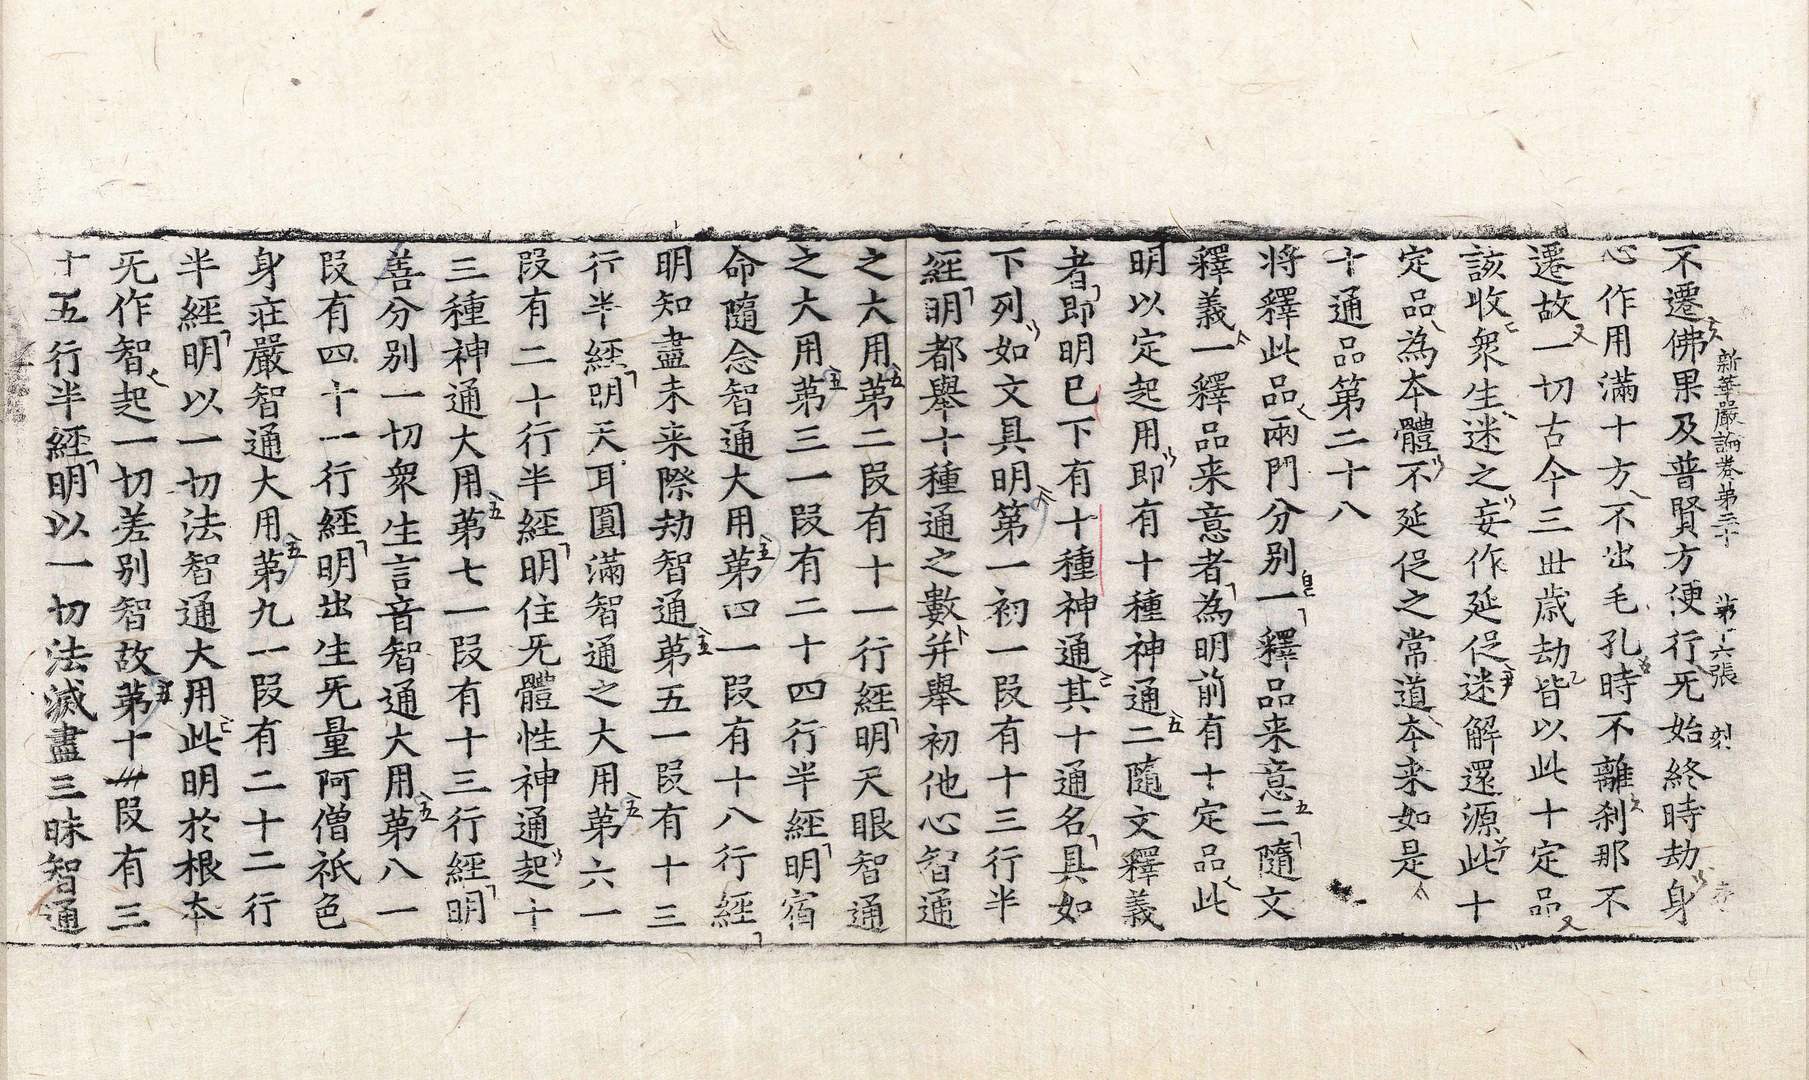 新華嚴論卷第二十　第十六張
不遷佛果及普賢方便行无始終時劫身
心作用滿十方不出毛孔時不離刹那不
遷故一切古今三世歲劫皆以此十定品
該收衆生迷之妄作延促迷解還源此十
定品為本體不延促之常道本来如是
十通品第二十八
将釋此品兩門分别一釋品来意二隨文
釋義一釋品来意者為明前有十定品此
明以定起用即有十種神通二隨文釋義
者即明已下有十種神通其十通名具如
下列如文具明第一初一段有十三行半
經明都舉十種通之數并舉初他心智通
之大用第二段有十一行經明天眼智通
之大用第三一段有二十四行半經明宿
命隨念智通大用第四一段有十八行經
明知盡未来際劫智通第五一段有十三
行半經明天耳圓滿智通之大用第六一
段有二十行半經明住无體性神通起十
三種神通大用第七一段有十三行經明
善分别一切衆生言音智通大用第八一
段有四十一行經明出生无量阿僧祇色
身莊嚴智通大用第九一段有二十二行
半經明以一切法智通大用此明於根本
无作智起一切差别智故第十段有三
十五行半經明以一切法滅盡三昧智通